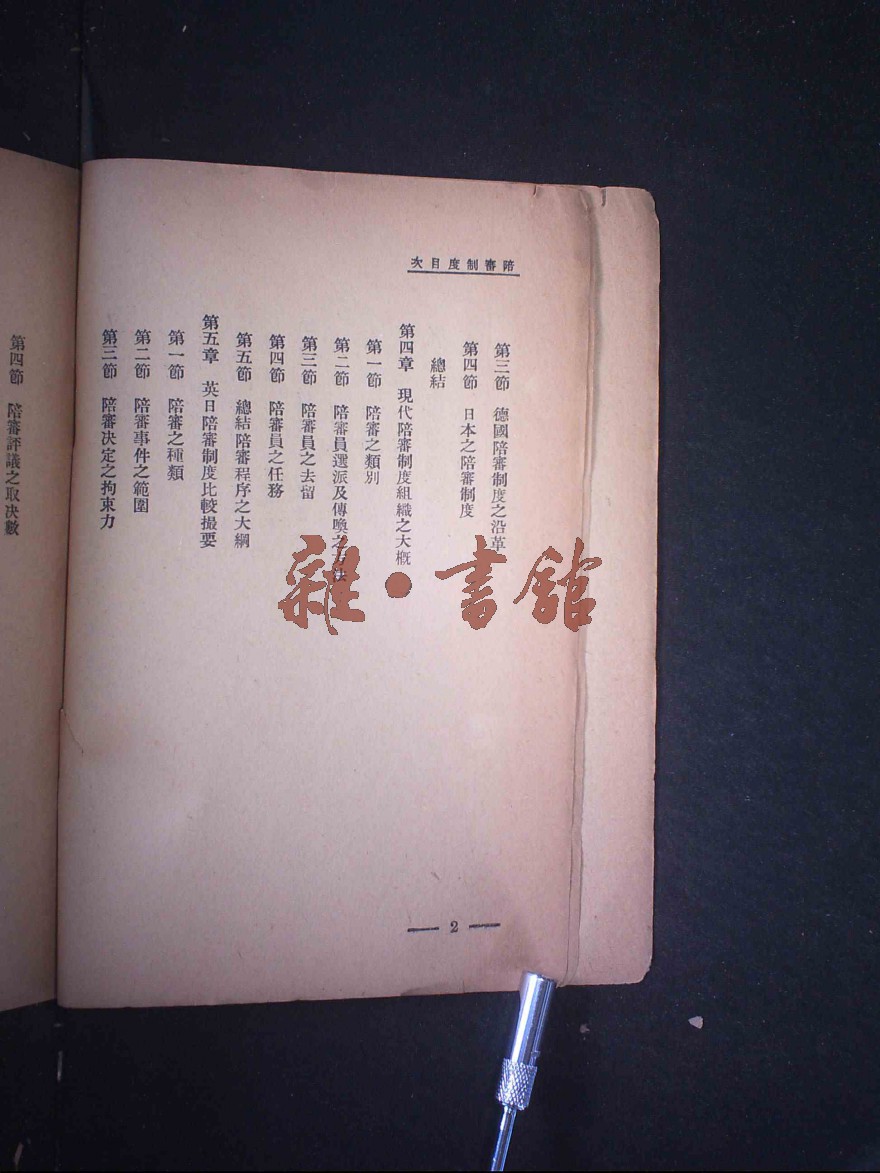 陪審制度目次
第三節　德國陪審制度之沿革
第四節　日本之陪審制度
總結
第四章　現代陪審制度組織之大概
第一節　陪審之類別
第二節　陪審員選派及傳喚之方法
第三節　陪審員之去留
第四節　陪審員之任務
第五節　總結陪審程序之大綱
第五章　英日陪審制度比較撮要
第一節　陪審之種類
第二節　陪審事件之範圍
第三節　陪審決定之拘束力
第四節　陪審評議之取決數
— 2 —
雜·書館